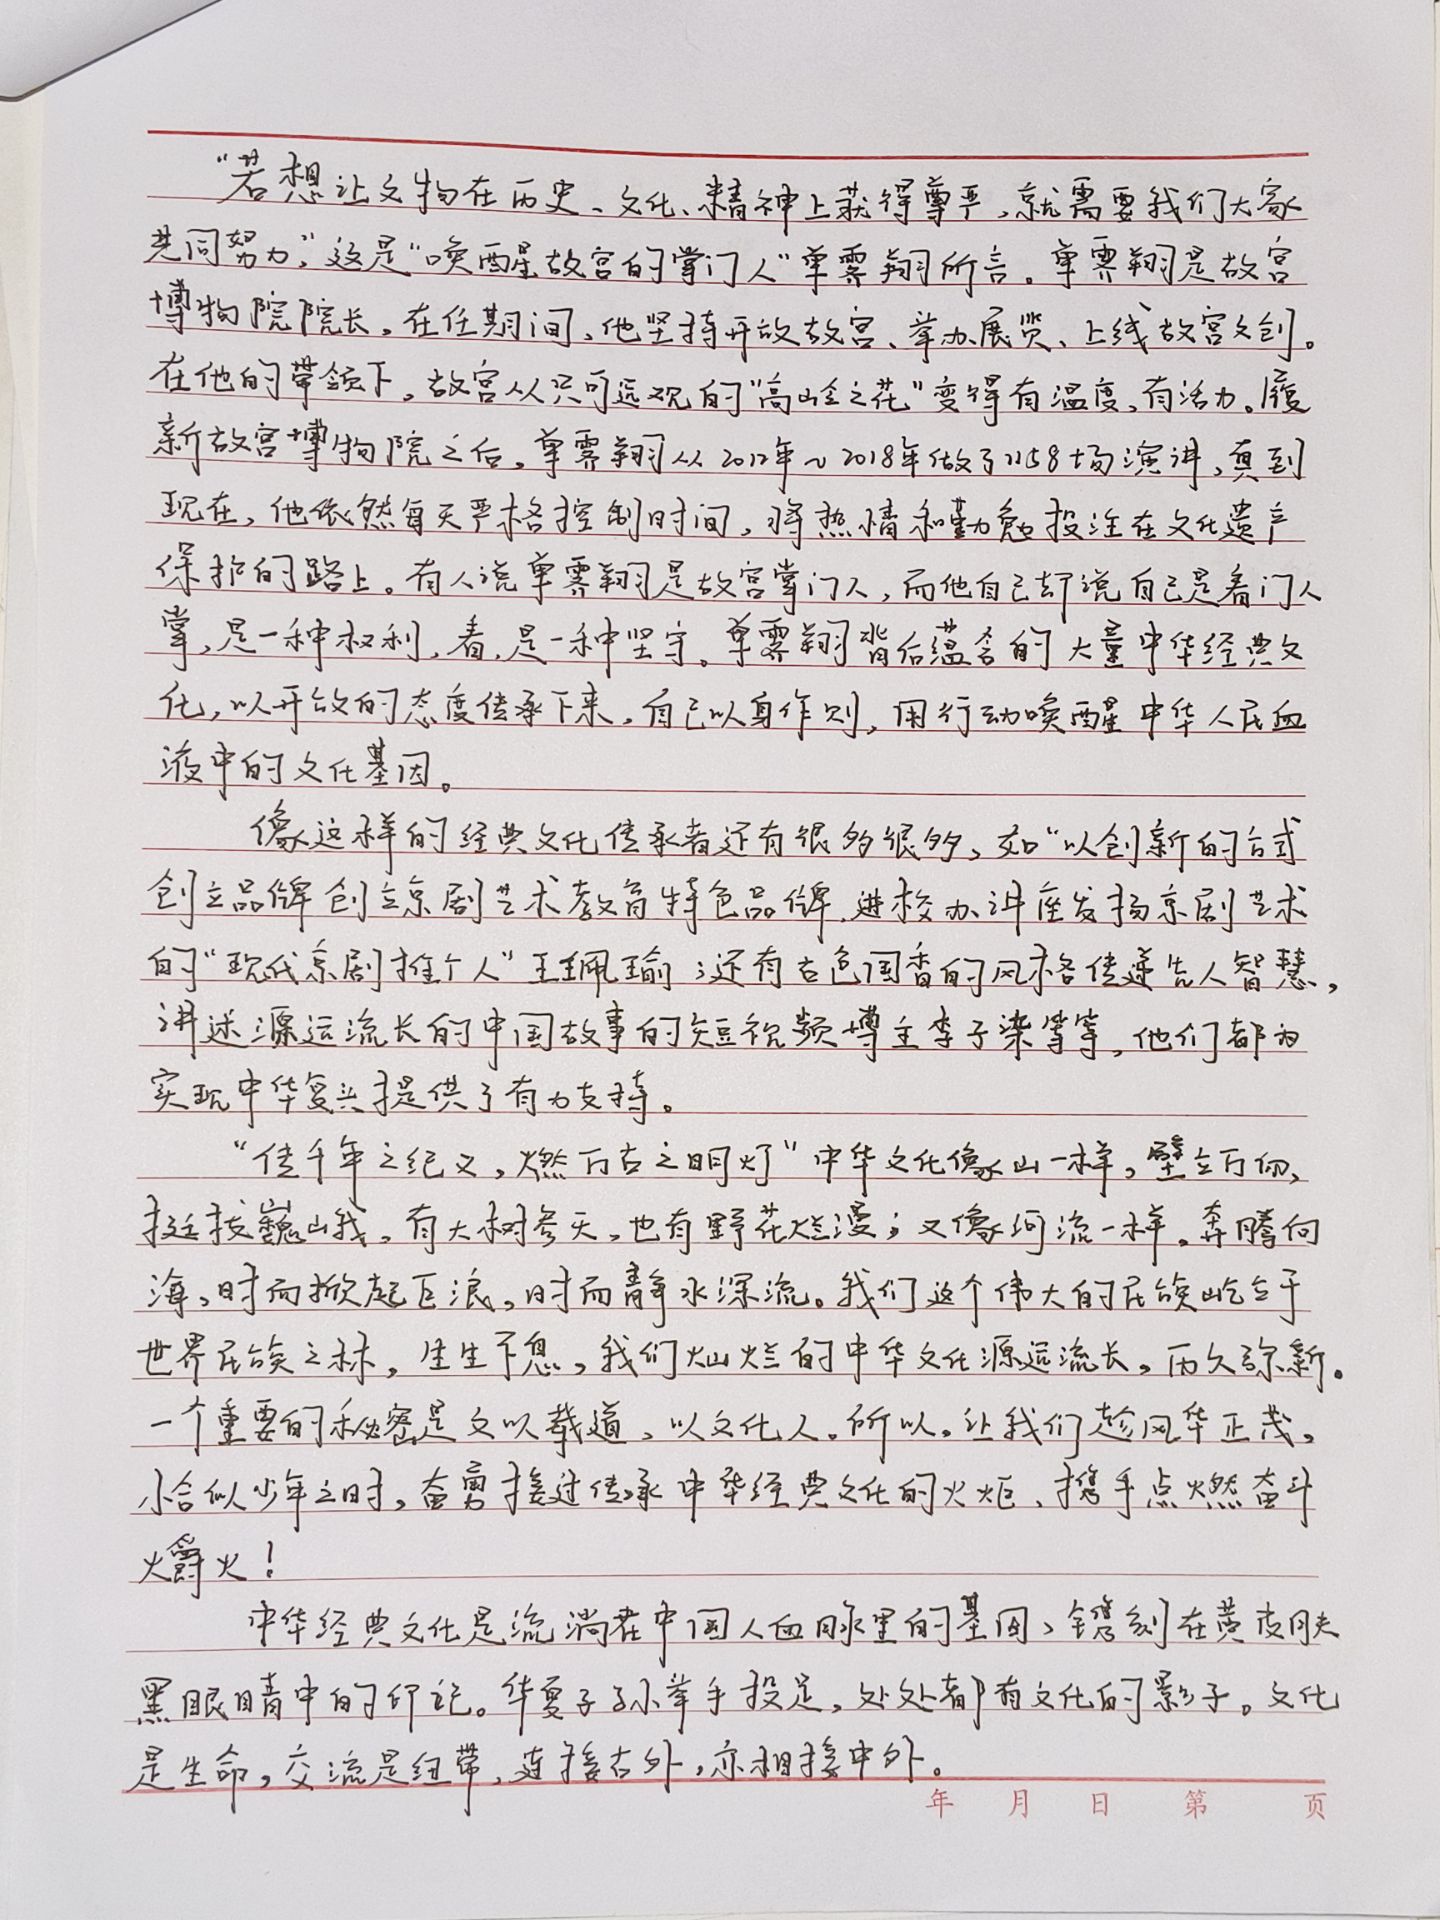 “若想让文物在历史、文化、精神上获得尊严，就需要我们大家
共同努力，”这是“唤醒故宫的掌门人”单霁翔所言。单霁翔是故宫
博物院院长，在任期间，他坚持开放故宫、举办展览、上线故宫文创。
在他的带领下，故宫从只可远观的“高岭之花”变得有温度，有活力。履
新故宫博物院之后，单霁翔从2012年~2018年做了1158场演讲，真到
现在，他依然每天严格控制时间，将热情和勤勉投注在文化遗产
保护的路上。有人说单霁翔是故宫掌门人，而他自己却说自己是看门人
掌，是一种权利，看，是一种坚守。单霁翔背后蕴含的大量中华经典文
化，以开放的态度传承下来，自己以身作则，用行动唤醒中华人民血
液中的文化基因。
像这样的经典文化传承者还有很多很多，如“以创新的方式
创立品牌创立京剧艺术教育特色品牌，进校办讲座发扬京剧艺术
的“现代京剧推介人”王珮瑜；还有古色国香的风格传递先人智慧，
讲述源远流长的中国故事的短视频博主李子染等等，他们都为
实现中华复兴提供了有力支持。
“传千年之纪义，燃万古之明灯”中华文化像山一样，壁立万仞，
挺拔巍峨，有大树参天，也有野花烂漫；又像河流一样，奔腾向
海，时而掀起巨浪，时而静水深流。我们这个伟大的民族屹立于
世界民族之林，生生不息，我们灿烂的中华文化源远流长，历久弥新。
一个重要的秘密是文以载道，以文化人。所以，让我们趁风华正茂，
恰似少年之时，奋勇接过传承中华经典文化的火炬，携手点燃奋斗
爝火！
中华经典文化是流淌在中国人血脉里的基因，镌刻在黄皮肤
黑眼睛中的印记。华夏子孙举手投足，处处都有文化的影子。文化
是生命，交流是纽带，连接古外，亦相接中外。
年 月 日 第 页